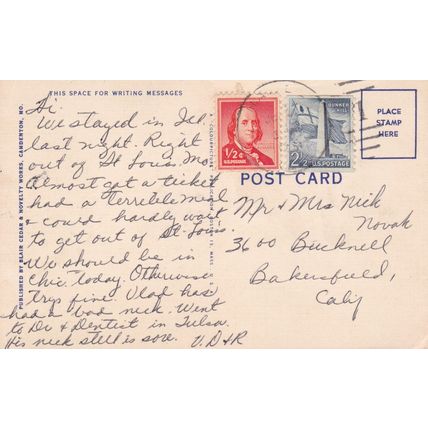 THIS SPACE FOR WRITING MESSAGES
Hi.
We stayed in Ill.
last night. Right
out of St Louis, Mo.
Almost got a ticket
had a terrible meal
& could hardly wait
to get out of St. Louis.
We should be in
Chic. today. Otherwise
trip fine. Vlad has
had a bad neck. Went
to Dr & Dentist in Tulsa.
His neck still is sore. V. D & R
PUBLISHED BY BLAIR CEDAR & NOVELTY WORKS, CAMDENTON, MO.
1/2¢
U.S. POSTAGE
BUNKER
HILL
2 1/2¢ U.S. POSTAGE
PLACE
STAMP
HERE
POST CARD
Mr & Mrs Nick
Novak
3600 Bucknell
Bakersfield,
Calif